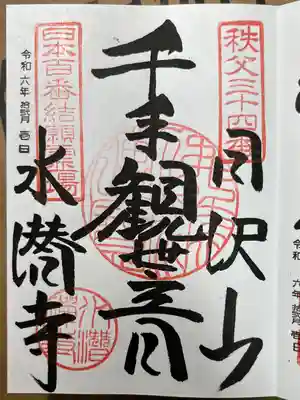 秩父三十四番
日沢山
千手観世音
日本百番結願霊場
水潜寺
令和六年 壱日
令和 六年 壱日